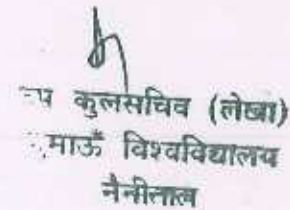 कुलसचिव (लेखा)
विश्वविद्यालय
नैनीताल